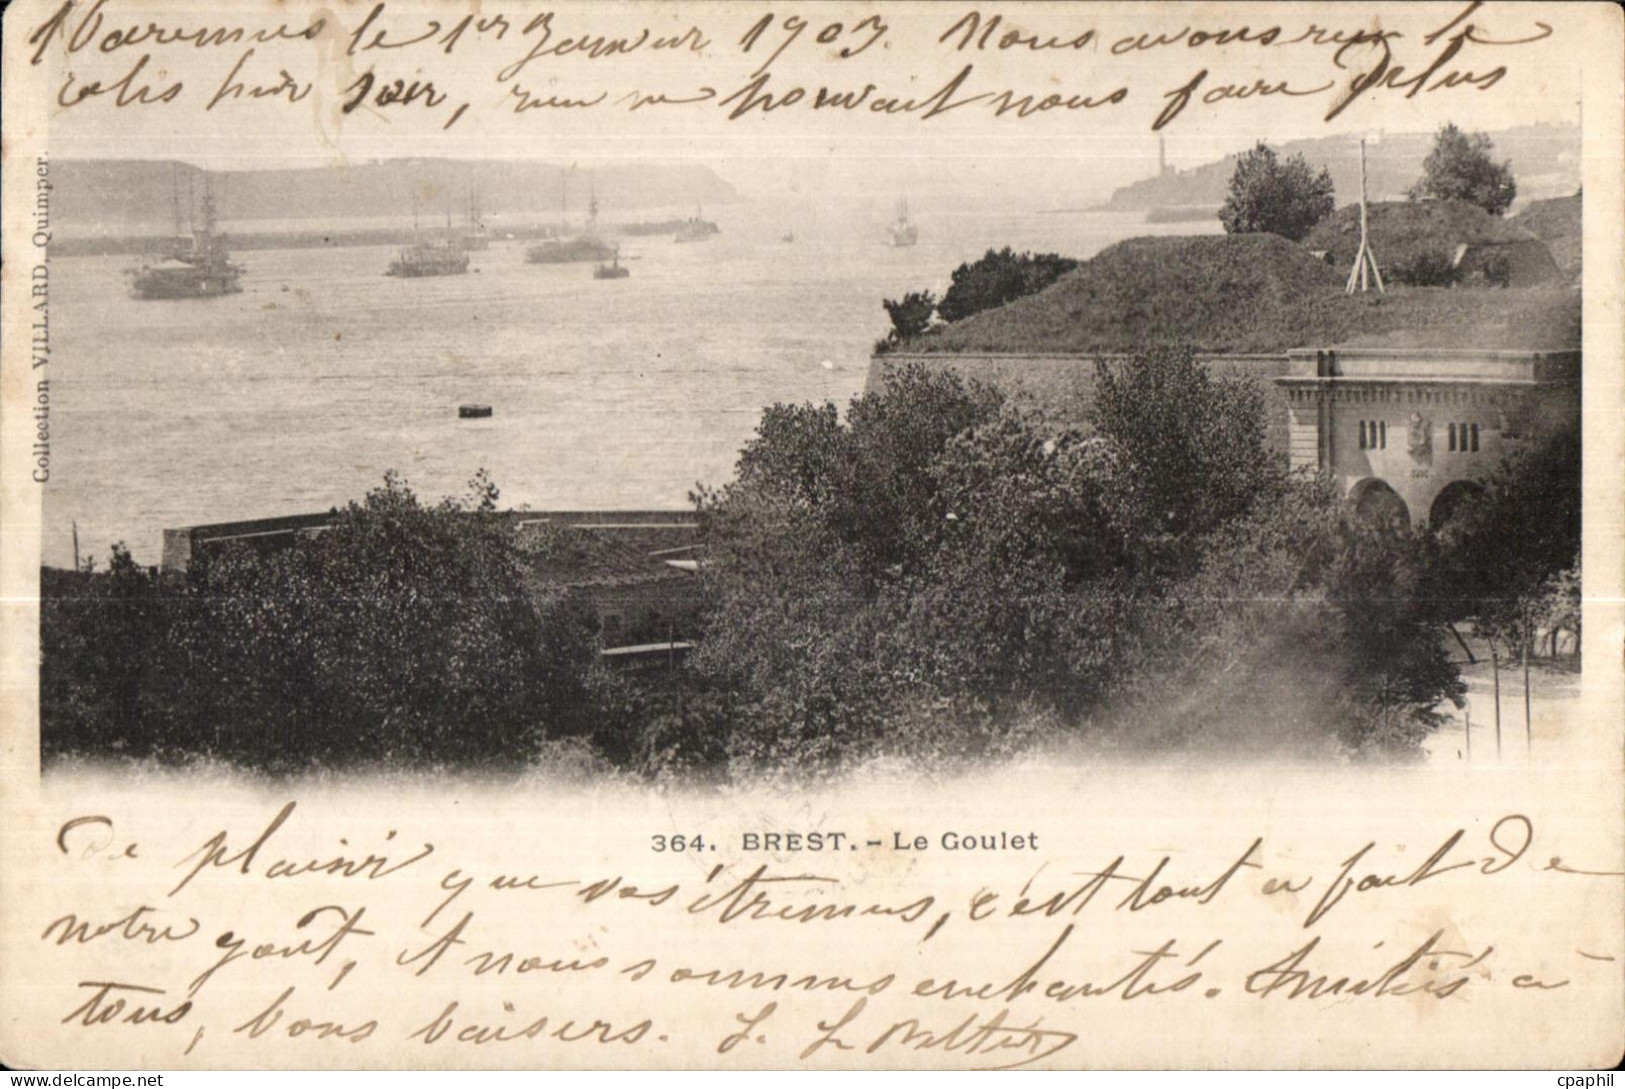 Varennes le 1er Janvier 1903. Nous avons reçu le
colis hier soir, rien ne pouvait nous faire plus
Collection VILLARD, Quimper.
364. BREST. - Le Goulet
De plaisir que vos étrennes, c'est tout a fait de
notre gout, et nous sommes enchantés. Amitiés à
tous, bons baisers.
cpaphil